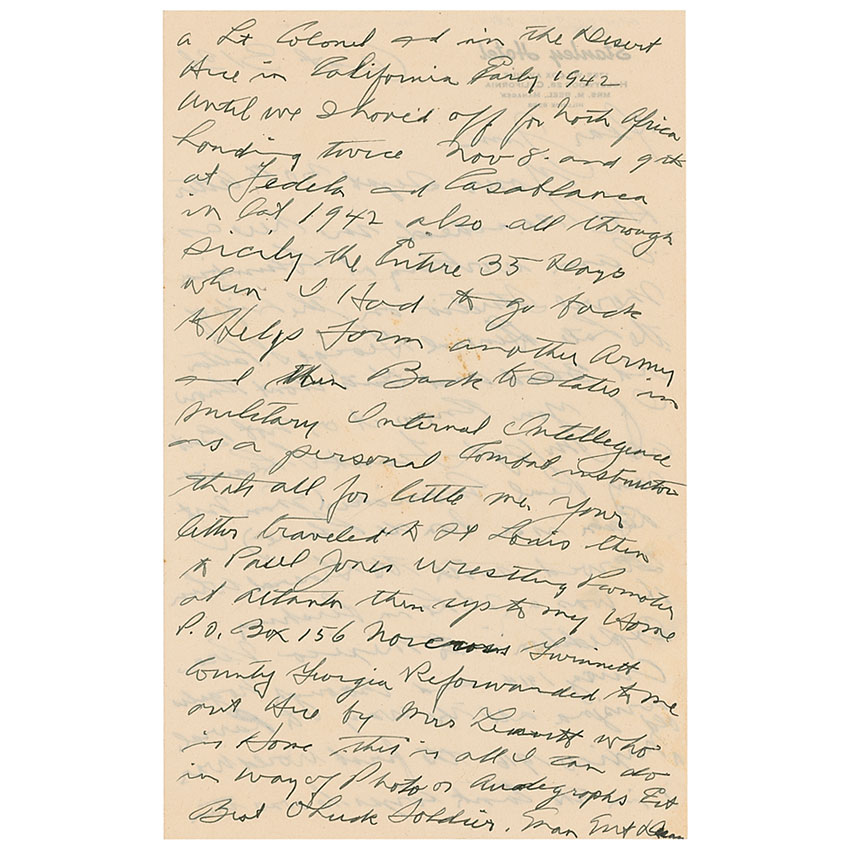 a Lt Colonel and in the Desert
Here in California Early 1942
Until we shoved off for North Africa
Landing twice Nov 8. and 9th
at Fedela and Casablanca
in 1942 also all through
Sicily the Entire 35 Days
when I Had to go back
to Help Form another Army
and then Back to States in
military Internal Intellegence
as a personal Combat instructor
thats all for little me. Your
letter traveled to St Louis then
to Paul Jones Wrestling Promoter
at Atlanta then up to my Home
P.O. Box 156 Norcross Gwinnett
County Georgia Reforwarded to me
out Here by Mrs who
is Home this is all I can do
in way of Photo or Autographs
Best Luck Soldier.
Stanley Hotel